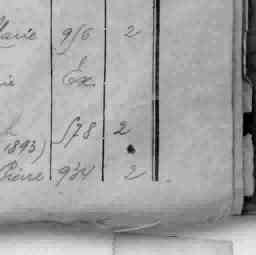 Marie 956 2
ie Ex.
578 2
1893)
Pierre 934 2